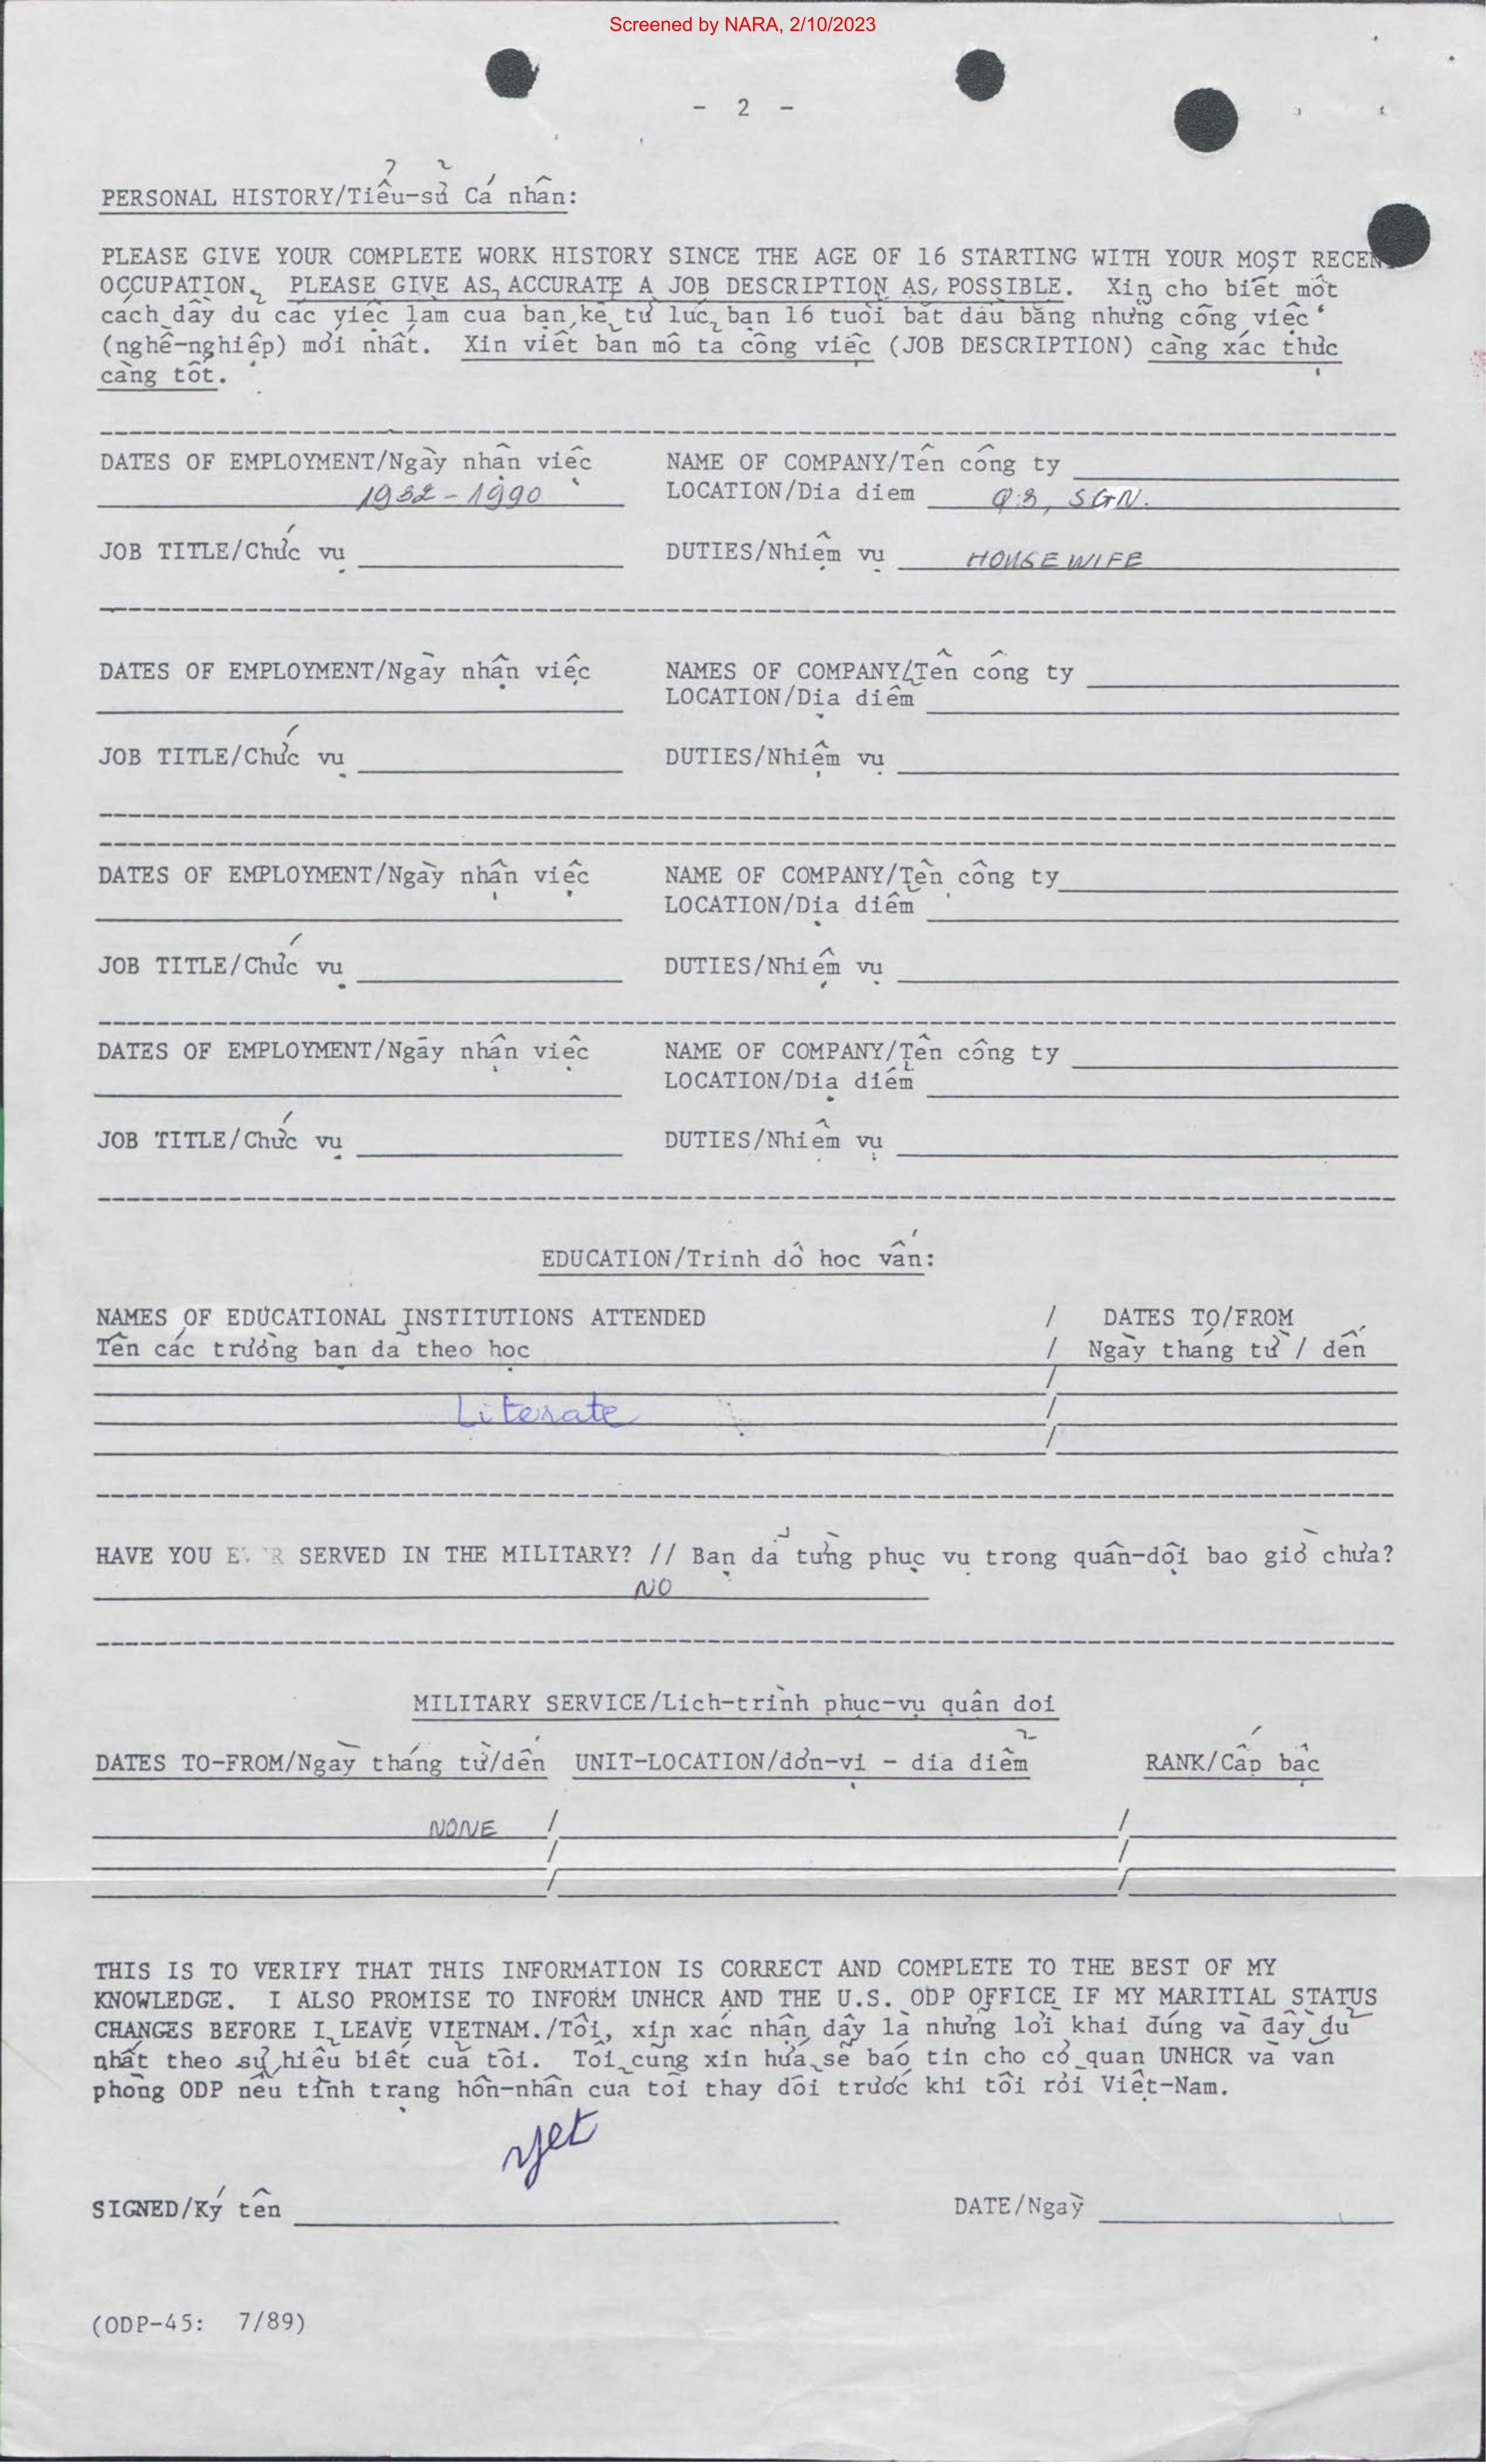 Screened by NARA, 2/10/2023
- 2 -
PERSONAL HISTORY/Tiểu-sử Cá nhân:
PLEASE GIVE YOUR COMPLETE WORK HISTORY SINCE THE AGE OF 16 STARTING WITH YOUR MOST RECEN
OCCUPATION. PLEASE GIVE AS ACCURATE A JOB DESCRIPTION AS POSSIBLE. Xin cho biết một
cách dầy dủ các việc làm của bạn kể từ lúc bạn 16 tuổi bắt dầu bằng những công việc
(nghề-nghiệp) mới nhất. Xin viết bản mô tả công việc (JOB DESCRIPTION) càng xác thực
càng tốt.
DATES OF EMPLOYMENT/Ngày nhận việc NAME OF COMPANY/Tên công ty
1932-1990 LOCATION/Dia diem Q.3, SGN.
JOB TITLE/Chức vụ DUTIES/Nhiệm vụ HOUSE WIFE
DATES OF EMPLOYMENT/Ngày nhận việc NAMES OF COMPANY/Tên công ty
LOCATION/Dịa diểm
JOB TITLE/Chức vụ DUTIES/Nhiệm vụ
DATES OF EMPLOYMENT/Ngày nhận việc NAME OF COMPANY/Tên công ty
LOCATION/Dịa diểm
JOB TITLE/Chức vụ DUTIES/Nhiệm vụ
DATES OF EMPLOYMENT/Ngày nhận việc NAME OF COMPANY/Tên công ty
LOCATION/Dịa diểm
JOB TITLE/Chức vụ DUTIES/Nhiệm vụ
EDUCATION/Trinh dô hoc vấn:
NAMES OF EDUCATIONAL INSTITUTIONS ATTENDED / DATES TO/FROM
Tên các trường ban dã theo học / Ngày tháng từ / dến
/
Literate /
/
HAVE YOU EVER SERVED IN THE MILITARY? // Bạn dã từng phục vụ trong quân-dội bao giờ chưa?
NO
MILITARY SERVICE/Lich-trình phục-vụ quân doi
DATES TO-FROM/Ngày tháng từ/dến UNIT-LOCATION/dơn-vị - dia diểm RANK/Cấp bậc
NONE / /
/ /
/ /
THIS IS TO VERIFY THAT THIS INFORMATION IS CORRECT AND COMPLETE TO THE BEST OF MY
KNOWLEDGE. I ALSO PROMISE TO INFORM UNHCR AND THE U.S. ODP OFFICE IF MY MARITIAL STATUS
CHANGES BEFORE I LEAVE VIETNAM./Tôi, xin xác nhận dây là những lời khai dúng và dầy dủ
nhất theo sự hiểu biết của tôi. Tôi cũng xin hứa sẽ báo tin cho cơ quan UNHCR và văn
phòng ODP nếu tình trạng hôn-nhân của tôi thay dổi trước khi tôi rời Việt-Nam.
SIGNED/Ký tên DATE/Ngày
(ODP-45: 7/89)